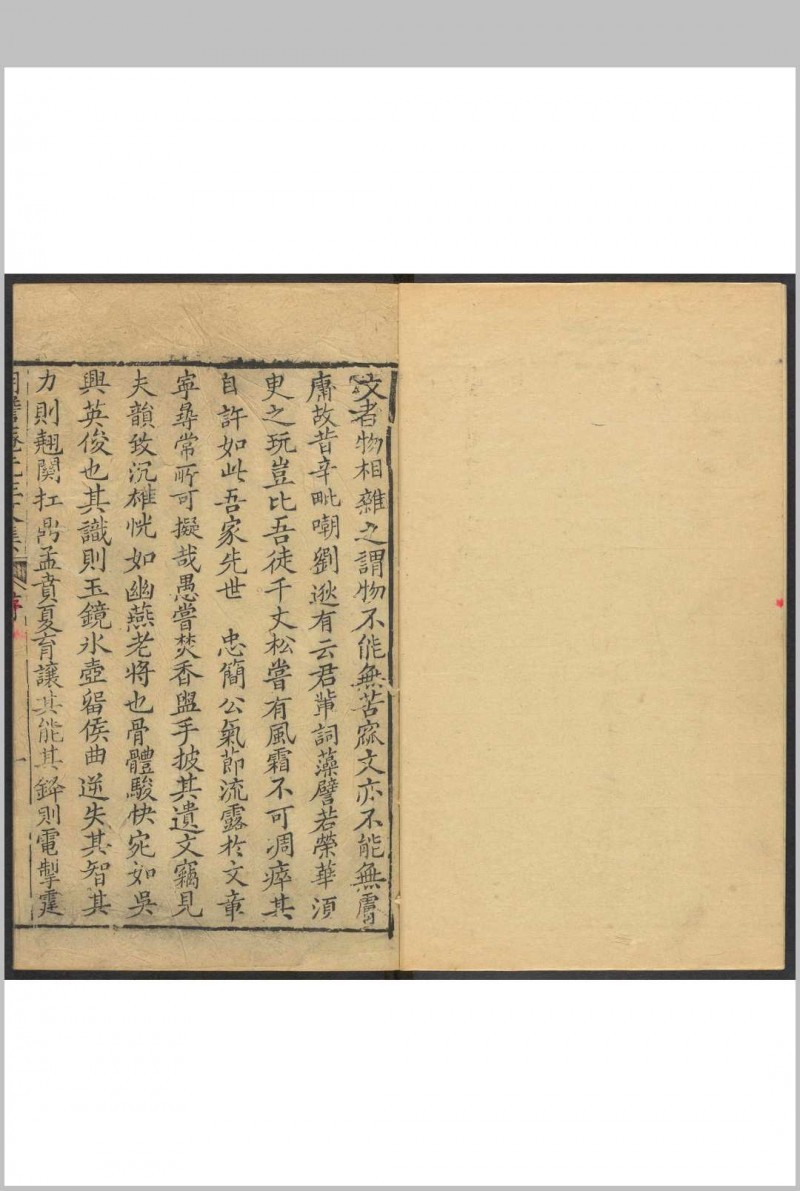 文者物相雜之謂物不能無苦窳文亦不能無膚
庸故昔辛毗嘲劉逖有云君軰詞藻譬若榮華湏
臾之玩豈比吾徒千丈松嘗有風霜不可凋瘁其
自許如此吾家先世 忠簡公氣節流露於文章
寧尋常所可擬哉愚嘗焚香盥手披其遺文竊見
夫韻致沉雄恍如幽燕老將也骨體駿快宛如吳
興英俊也其識則玉鏡氷壺留侯曲逆失其智其
力則翹關扛鼎孟賁夏育讓其能其鋒則電掣霆
序
一